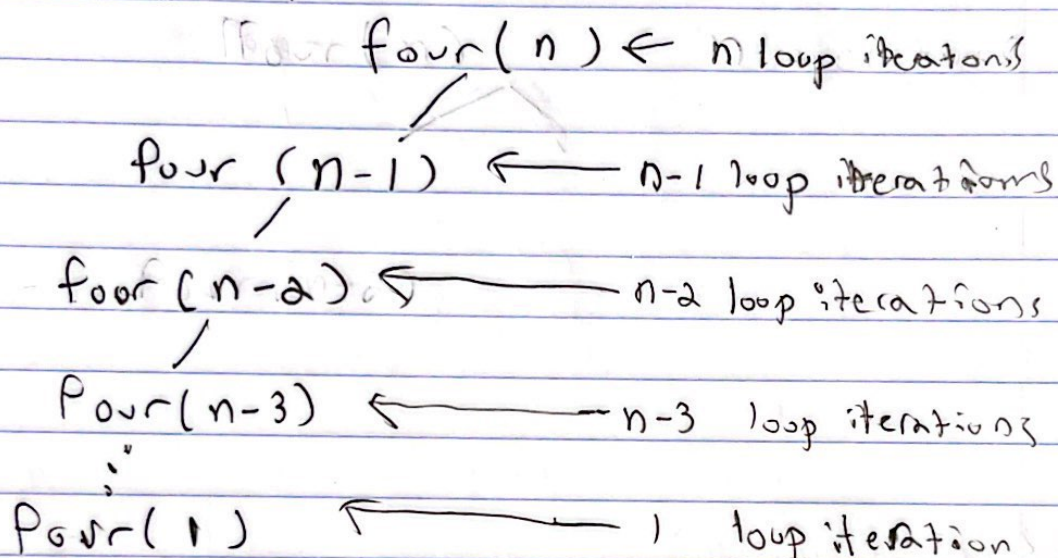 four(n) ← n loop iteratons
four (n-1) ← n-1 loop iterations
foor (n-2) ← n-2 loop iterations
four(n-3) ← n-3 loop iterations
four(1) ← 1 loop iteration